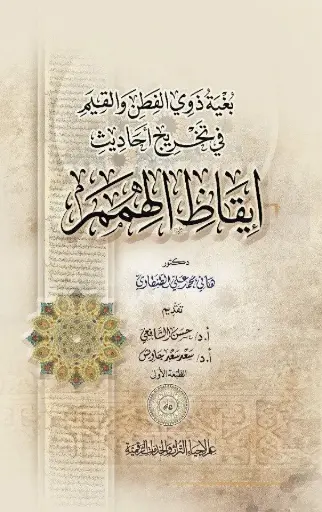 بُغْيَةُ ذَوِي الفِطَنِ وَالقِيَمِ
فِي تَخْرِيجِ أَحَادِيثِ
إِيقَاظِ الهِمَمِ
دكتور
هاني محمد علي
تقديم
أ.د/ حسن الشافعي
أ.د/ سعد سعد جاويش
الطبعة الأولى
علم لإحياء التراث والخدمات الرقمية